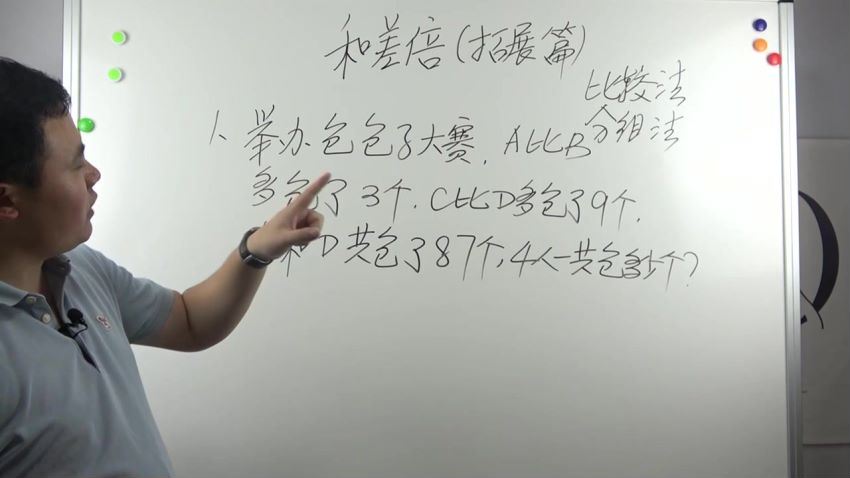 和差倍(拓展篇)
比较法
分组法
1、举办包包子大赛，A比B
多包了3个，C比D多包了9个，
和D共包了87个，4人一共包多少个？